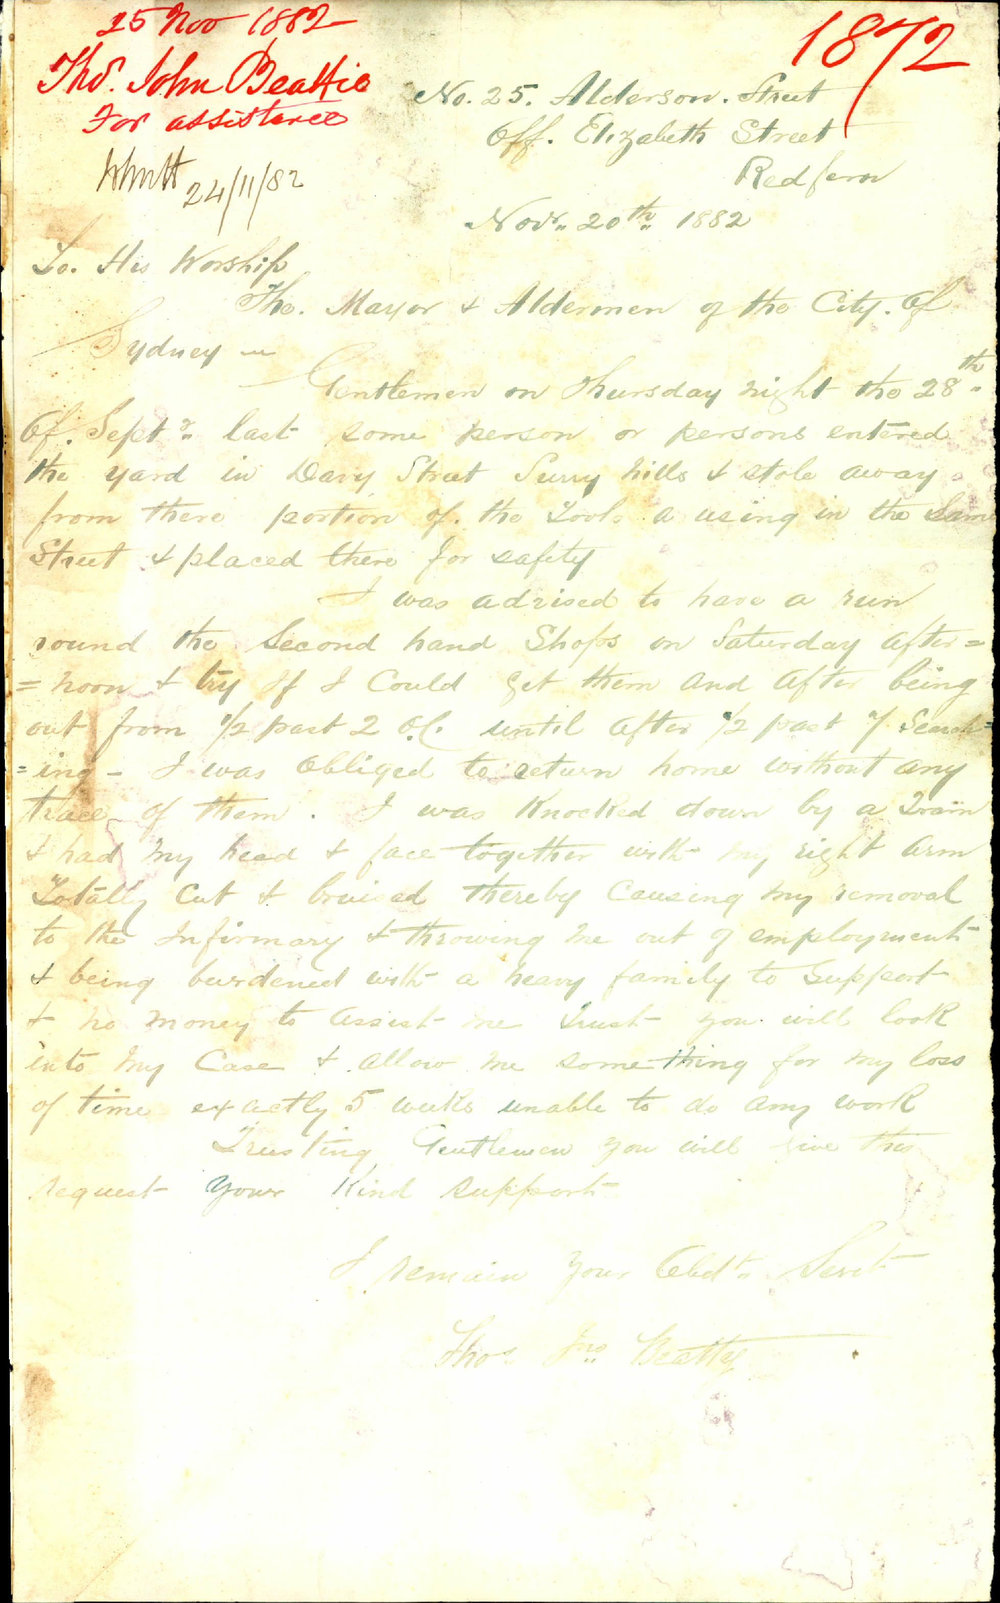 25 Nov 1882
1872
Thos. John Beattie
For assistance
24/11/82
No. 25. Alderson. Street
Off. Elizabeth Street
Redfern
Novr. 20th. 1882
To. His Worship
The. Mayor & Aldermen of the City. Of
Sydney
Gentlemen on Thursday night the 28th.
Of. Septr. last some person or persons entered
the yard in Davy Street Surry hills & stole away
from there portion of. the Tools a using in the Same
Street & placed there for safety
I was advised to have a run
round the Second hand Shops on Saturday after=
=noon & try if I Could get them and after being
out from 1/2 past 2 O.C. until after 1/2 past 7 Search=
=ing - I was Obliged to return home without any
trace of them. I was Knocked down by a Tram
& had my head & face together with my right Arm
Totally Cut & bruised thereby Causing my removal
to the Infirmary & throwing me out of employment
& being burdened with a heavy family to Support
& no money to Assist me Trust you will look
into my Case & allow me something for my loss
of time exactly 5 weeks unable to do any work
Trusting Gentlemen you will give this
request your Kind support
I remain your Obdt. Servt
Thos. Jno. Beattie